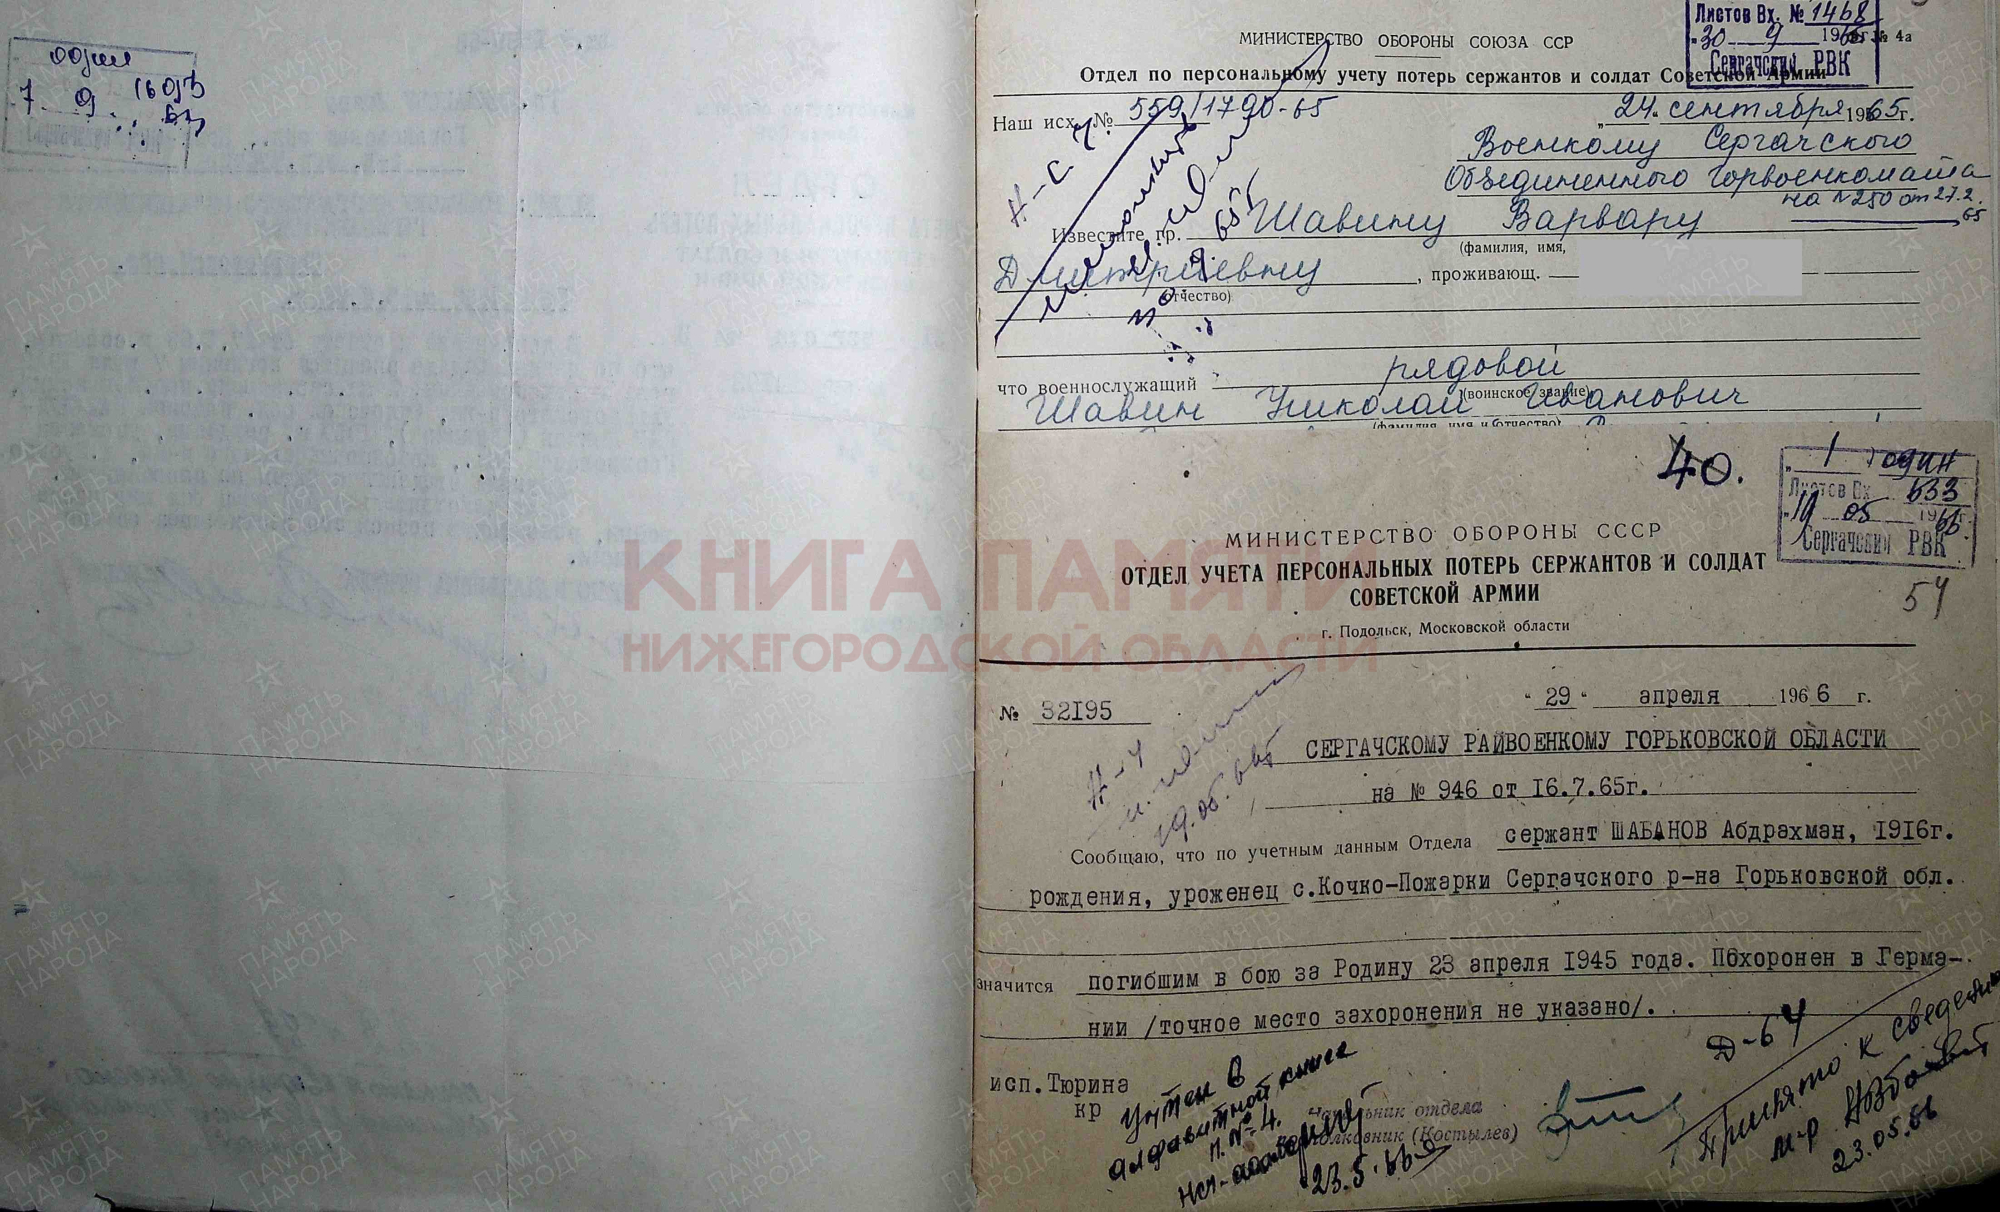 один
7
Листов Вх. № 1468
30 9 1965 г. № 4а
Сергачский РВК
МИНИСТЕРСТВО ОБОРОНЫ СОЮЗА ССР
Отдел по персональному учету потерь сержантов и солдат Советской Армии
Наш исх. № 559/1790-65
„24" сентября 1965 г.
Военкому Сергачского
Объединенного горвоенкомата
на №250 от 27.2.
65
Известите гр. Шавину Варвару
(фамилия, имя,
Дмитриевну, проживающ.
отчество)
что военнослужащий рядовой
(воинское звание)
Шавин Николай Иванович
(фамилия, имя и отчество)
40.
1 один
Листов Вх. 633
19 05 1966 г.
Сергачский РВК
54
МИНИСТЕРСТВО ОБОРОНЫ СССР
ОТДЕЛ УЧЕТА ПЕРСОНАЛЬНЫХ ПОТЕРЬ СЕРЖАНТОВ И СОЛДАТ
СОВЕТСКОЙ АРМИИ
г. Подольск, Московской области
КНИГА ПАМЯТИ
НИЖЕГОРОДСКОЙ ОБЛАСТИ
№ 32195
"29" апреля 1966 г.
Н-4
19.05.66г
СЕРГАЧСКОМУ РАЙВОЕНКОМУ ГОРЬКОВСКОЙ ОБЛАСТИ
на № 946 от 16.7.65г.
Сообщаю, что по учетным данным Отдела сержант ШАБАНОВ Абдрахман, 1916г.
рождения, уроженец с.Кочко-Пожарки Сергачского р-на Горьковской обл.
значится погибшим в бою за Родину 23 апреля 1945 года. Похоронен в Герма-
нии /точное место захоронения не указано/.
Д-64
исп.Тюрина
кр
Учтен в
алфавитной книге
п. № 4.
23.5.66г
Начальник отдела
Полковник (Костылев)
Принято к сведению
м-р
23.05.66
ПАМЯТЬ
НАРОДА